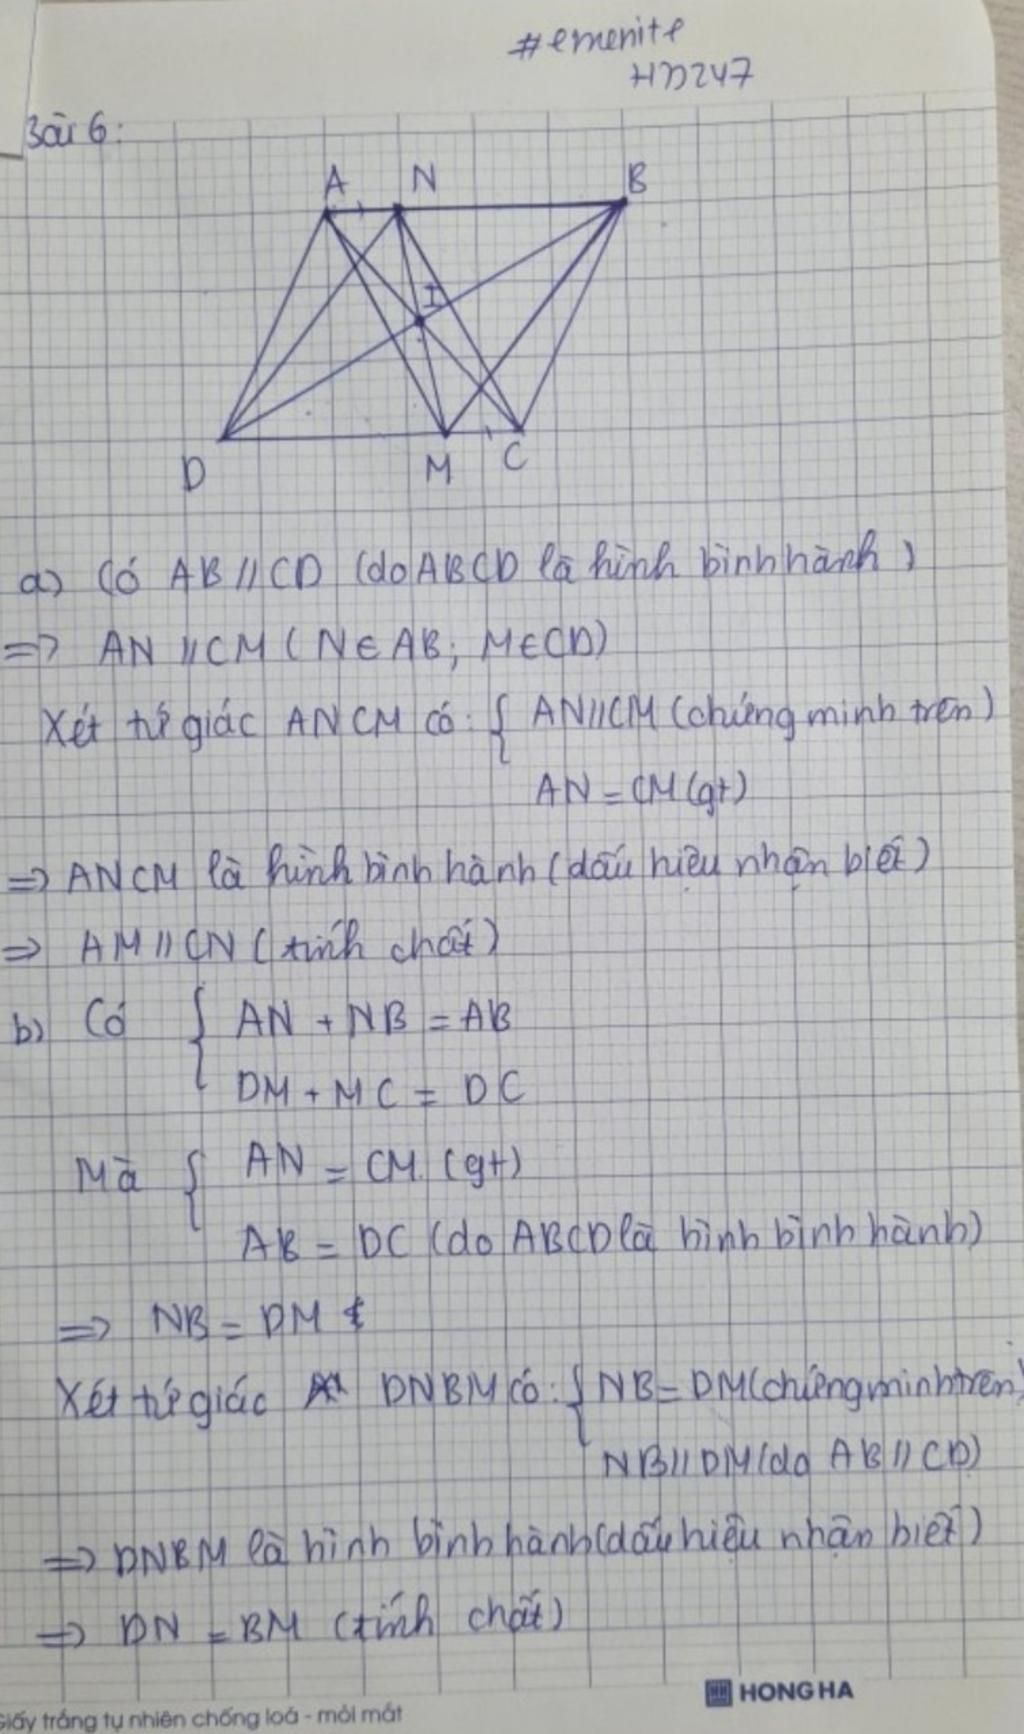 #emenite
HD247
Bài 6:
A N B
I
D M C
a) Có AB // CD (do ABCD là hình bình hành)
=> AN // CM (N ∈ AB; M ∈ CD)
Xét tứ giác ANCM có: { AN // CM (chứng minh trên)
AN = CM (gt)
=> ANCM là hình bình hành (dấu hiệu nhận biết)
=> AM // CN (tính chất)
b) Có { AN + NB = AB
DM + MC = DC
Mà { AN = CM (gt)
AB = DC (do ABCD là hình bình hành)
=> NB = DM
Xét tứ giác DNBM có: { NB = DM (chứng minh trên)
NB // DM (do AB // CD)
=> DNBM là hình bình hành (dấu hiệu nhận biết)
=> DN = BM (tính chất)
HONG HA
Giấy trắng tự nhiên chống loá - mỏi mắt